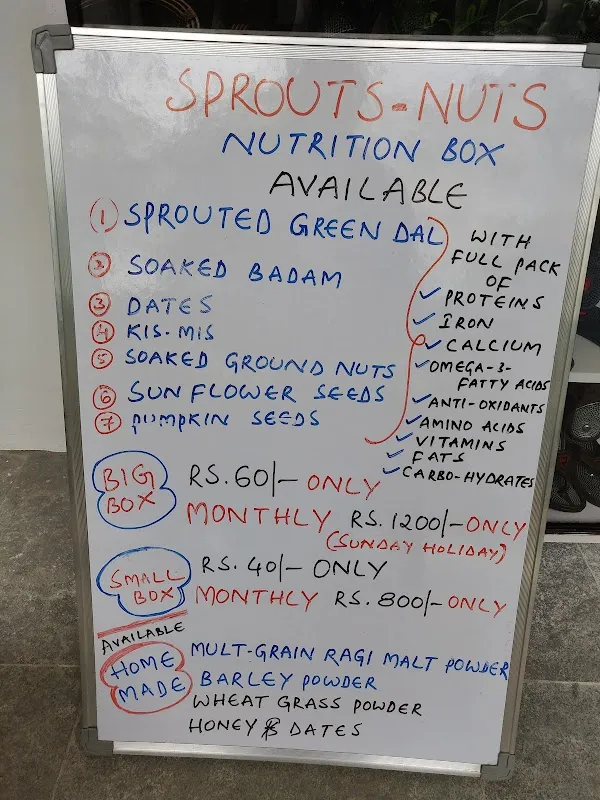 SPROUTS-NUTS
NUTRITION BOX
AVAILABLE
① SPROUTED GREEN DAL
② SOAKED BADAM
③ DATES
④ KIS-MIS
⑤ SOAKED GROUND NUTS
⑥ SUN FLOWER SEEDS
⑦ PUMPKIN SEEDS
WITH
FULL PACK
OF
✓ PROTEINS
✓ IRON
✓ CALCIUM
✓ OMEGA-3-
FATTY ACIDS
✓ ANTI-OXIDANTS
✓ AMINO ACIDS
✓ VITAMINS
✓ FATS
✓ CARBO-HYDRATES
BIG
BOX
RS.60/- ONLY
MONTHLY RS.1200/-ONLY
(SUNDAY HOLIDAY)
SMALL
BOX
RS.40/- ONLY
MONTHLY RS.800/-ONLY
AVAILABLE
HOME
MADE
MULT-GRAIN RAGI MALT POWDER
BARLEY POWDER
WHEAT GRASS POWDER
HONEY & DATES